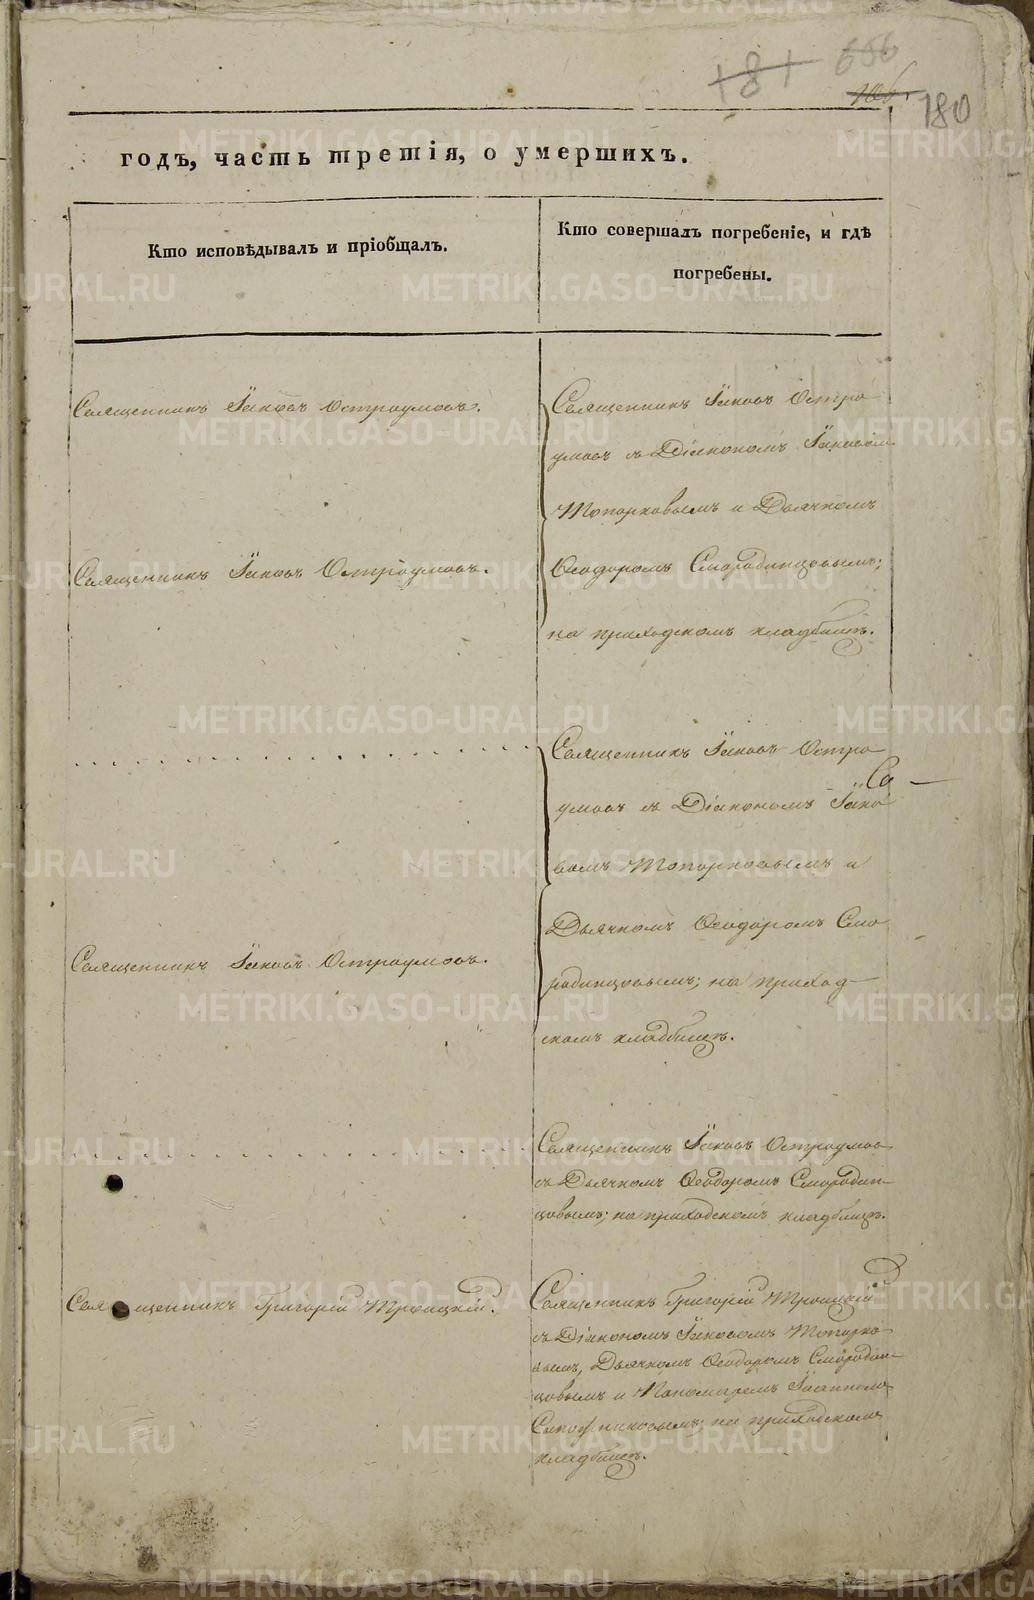 181 656
106. 180
годъ, часть третія, о умершихъ.
Кто исповѣдывалъ и пріобщалъ.
Кто совершалъ погребеніе, и гдѣ
погребены.
Священникъ Іаковъ Остроумовъ.
Священникъ Іаковъ Остро
умовъ съ Діакономъ Іаковомъ
Топорковымъ и Дьячкомъ
Ѳеодоромъ Смородинцовымъ;
на приходскомъ кладбищѣ.
Священникъ Іаковъ Остроумовъ.
Священникъ Іаковъ Остро
умовъ съ Діакономъ Іако
Со
вомъ Топорковымъ и
Дьячкомъ Ѳеодоромъ Смо
родинцовымъ; на приход-
скомъ кладбищѣ.
Священникъ Іаковъ Остроумовъ.
Священникъ Іаковъ Остроумовъ
съ Дьячкомъ Ѳеодоромъ Смородин-
цовымъ; на приходскомъ кладбищѣ.
Священникъ Григорій Троицкій.
Священникъ Григорій Троицкій
съ Діакономъ Іаковомъ Топорко-
вымъ, Дьячкомъ Ѳеодоромъ Смородин-
цовымъ и Пономаремъ Іоанномъ
Сапожниковымъ; на приходскомъ
кладбищѣ.
METRIKI.GASO-URAL.RU